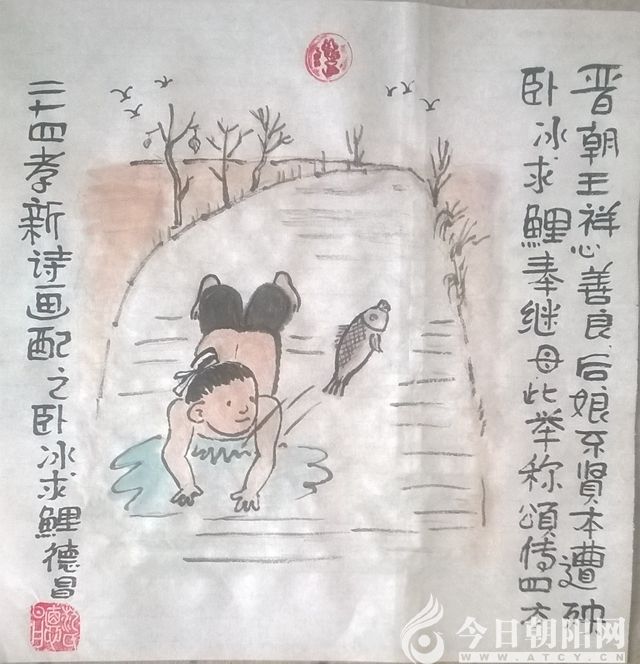 晋朝王祥心善良后娘不贤本遭殃
卧冰求鲤奉继母此举称頌传四方
二十四孝新诗画配之卧冰求鲤德昌
今日朝阳网
WWW.ATCY.CN